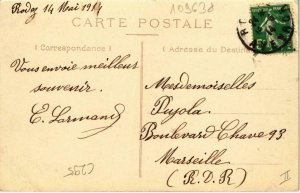 Rodez 14 Mai 1914
109638
CARTE POSTALE
Correspondance
Adresse du Destina
Vous envoie meilleur
souvenir.
E. Larmand
Mesdemoiselles
Pujola
Boulevard Chave 93
Marseille
(B.D.R)
II